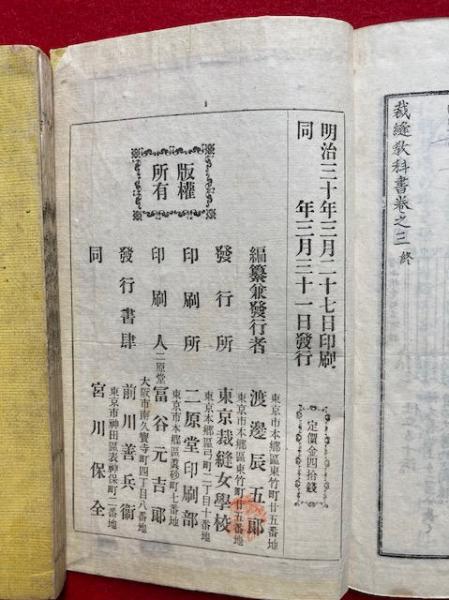 裁縫教科書卷之二 終
明治三十年三月二十七日印刷
同 年三月三十一日發行
定價金四拾錢
版權
所有
東京市本鄉區東竹町廿五番地
編纂兼發行者 渡邊辰五郎
東京市本鄉區東竹町廿五番地
發行所 東京裁縫女學校
東京市本鄉區弓町二丁目十番地
印刷所 二原堂印刷部
東京市本鄉區眞砂町七番地
印刷人 二原堂 冨谷元吉郎
大阪市南久寶寺町四丁目八番地
發行書肆 前川善兵衞
東京市神田區表神保町二番地
同 宮川保全